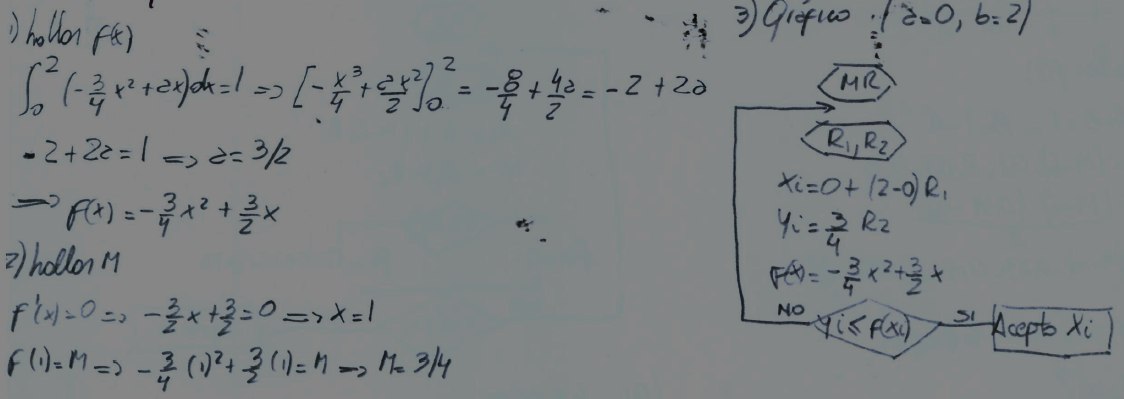 1) hallar f(x)
∫₀² (-3/4 x² + ax)dx = 1 => [-x³/4 + ax²/2]₀² = -8/4 + 4a/2 = -2 + 2a
-2 + 2a = 1 => a = 3/2
=> f(x) = -3/4 x² + 3/2 x
2) hallar M
f'(x) = 0 => -3/2 x + 3/2 = 0 => x = 1
f(1) = M => -3/4 (1)² + 3/2 (1) = M => M = 3/4
3) Gráfico : (a=0, b=2)
MR
R₁, R₂
Xi = 0 + (2-0) R₁
Yi = 3/4 R₂
f(x) = -3/4 x² + 3/2 x
NO Yi ≤ f(Xi) SI Acepto Xi